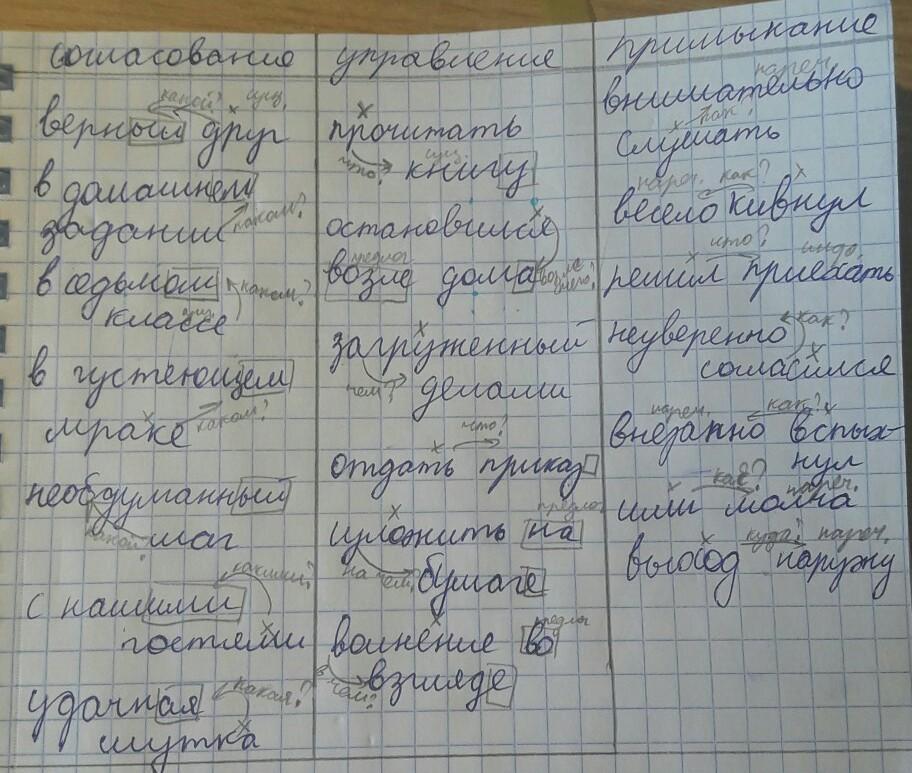 согласование
какой? сущ.
верный друг
в домашнем
задании каком?
в седьмом каком?
классе
в густеющем
мраке каком?
необдуманный
какой? шаг
какими?
с нашими
гостями
удачная какая?
шутка
управление
прочитать
что? сущ.
книгу
остановился
предлог
возле дома возле чего?
загруженный
чем? делами
что?
отдать приказ
предлог
изложить на
на чём? бумаге
предлог
волнение во
в чём? взгляде
примыкание
нареч.
внимательно
как?
слушать
нареч. как?
весело кивнул
что? инф.
решил приехать
неуверенно как?
согласился
нареч. как?
внезапно вспых-
нул
как? нареч.
шли молча
куда? нареч.
выход наружу